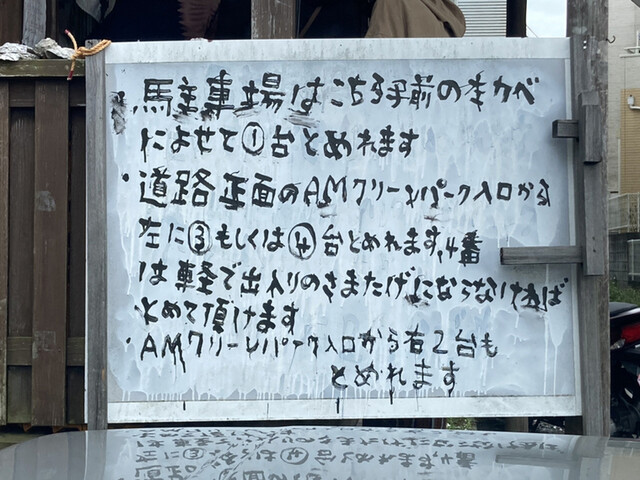 ・馬主車場はこちら手前の木カベ
によせて①台とめれます
・道路正面のAMクリーンパーク入口から
左に③もしくは④台とめれます,4番
は軽で出入りのさまたげにならなければ
とめて頂けます
・AMクリーンパーク入口から右2台も
とめれます